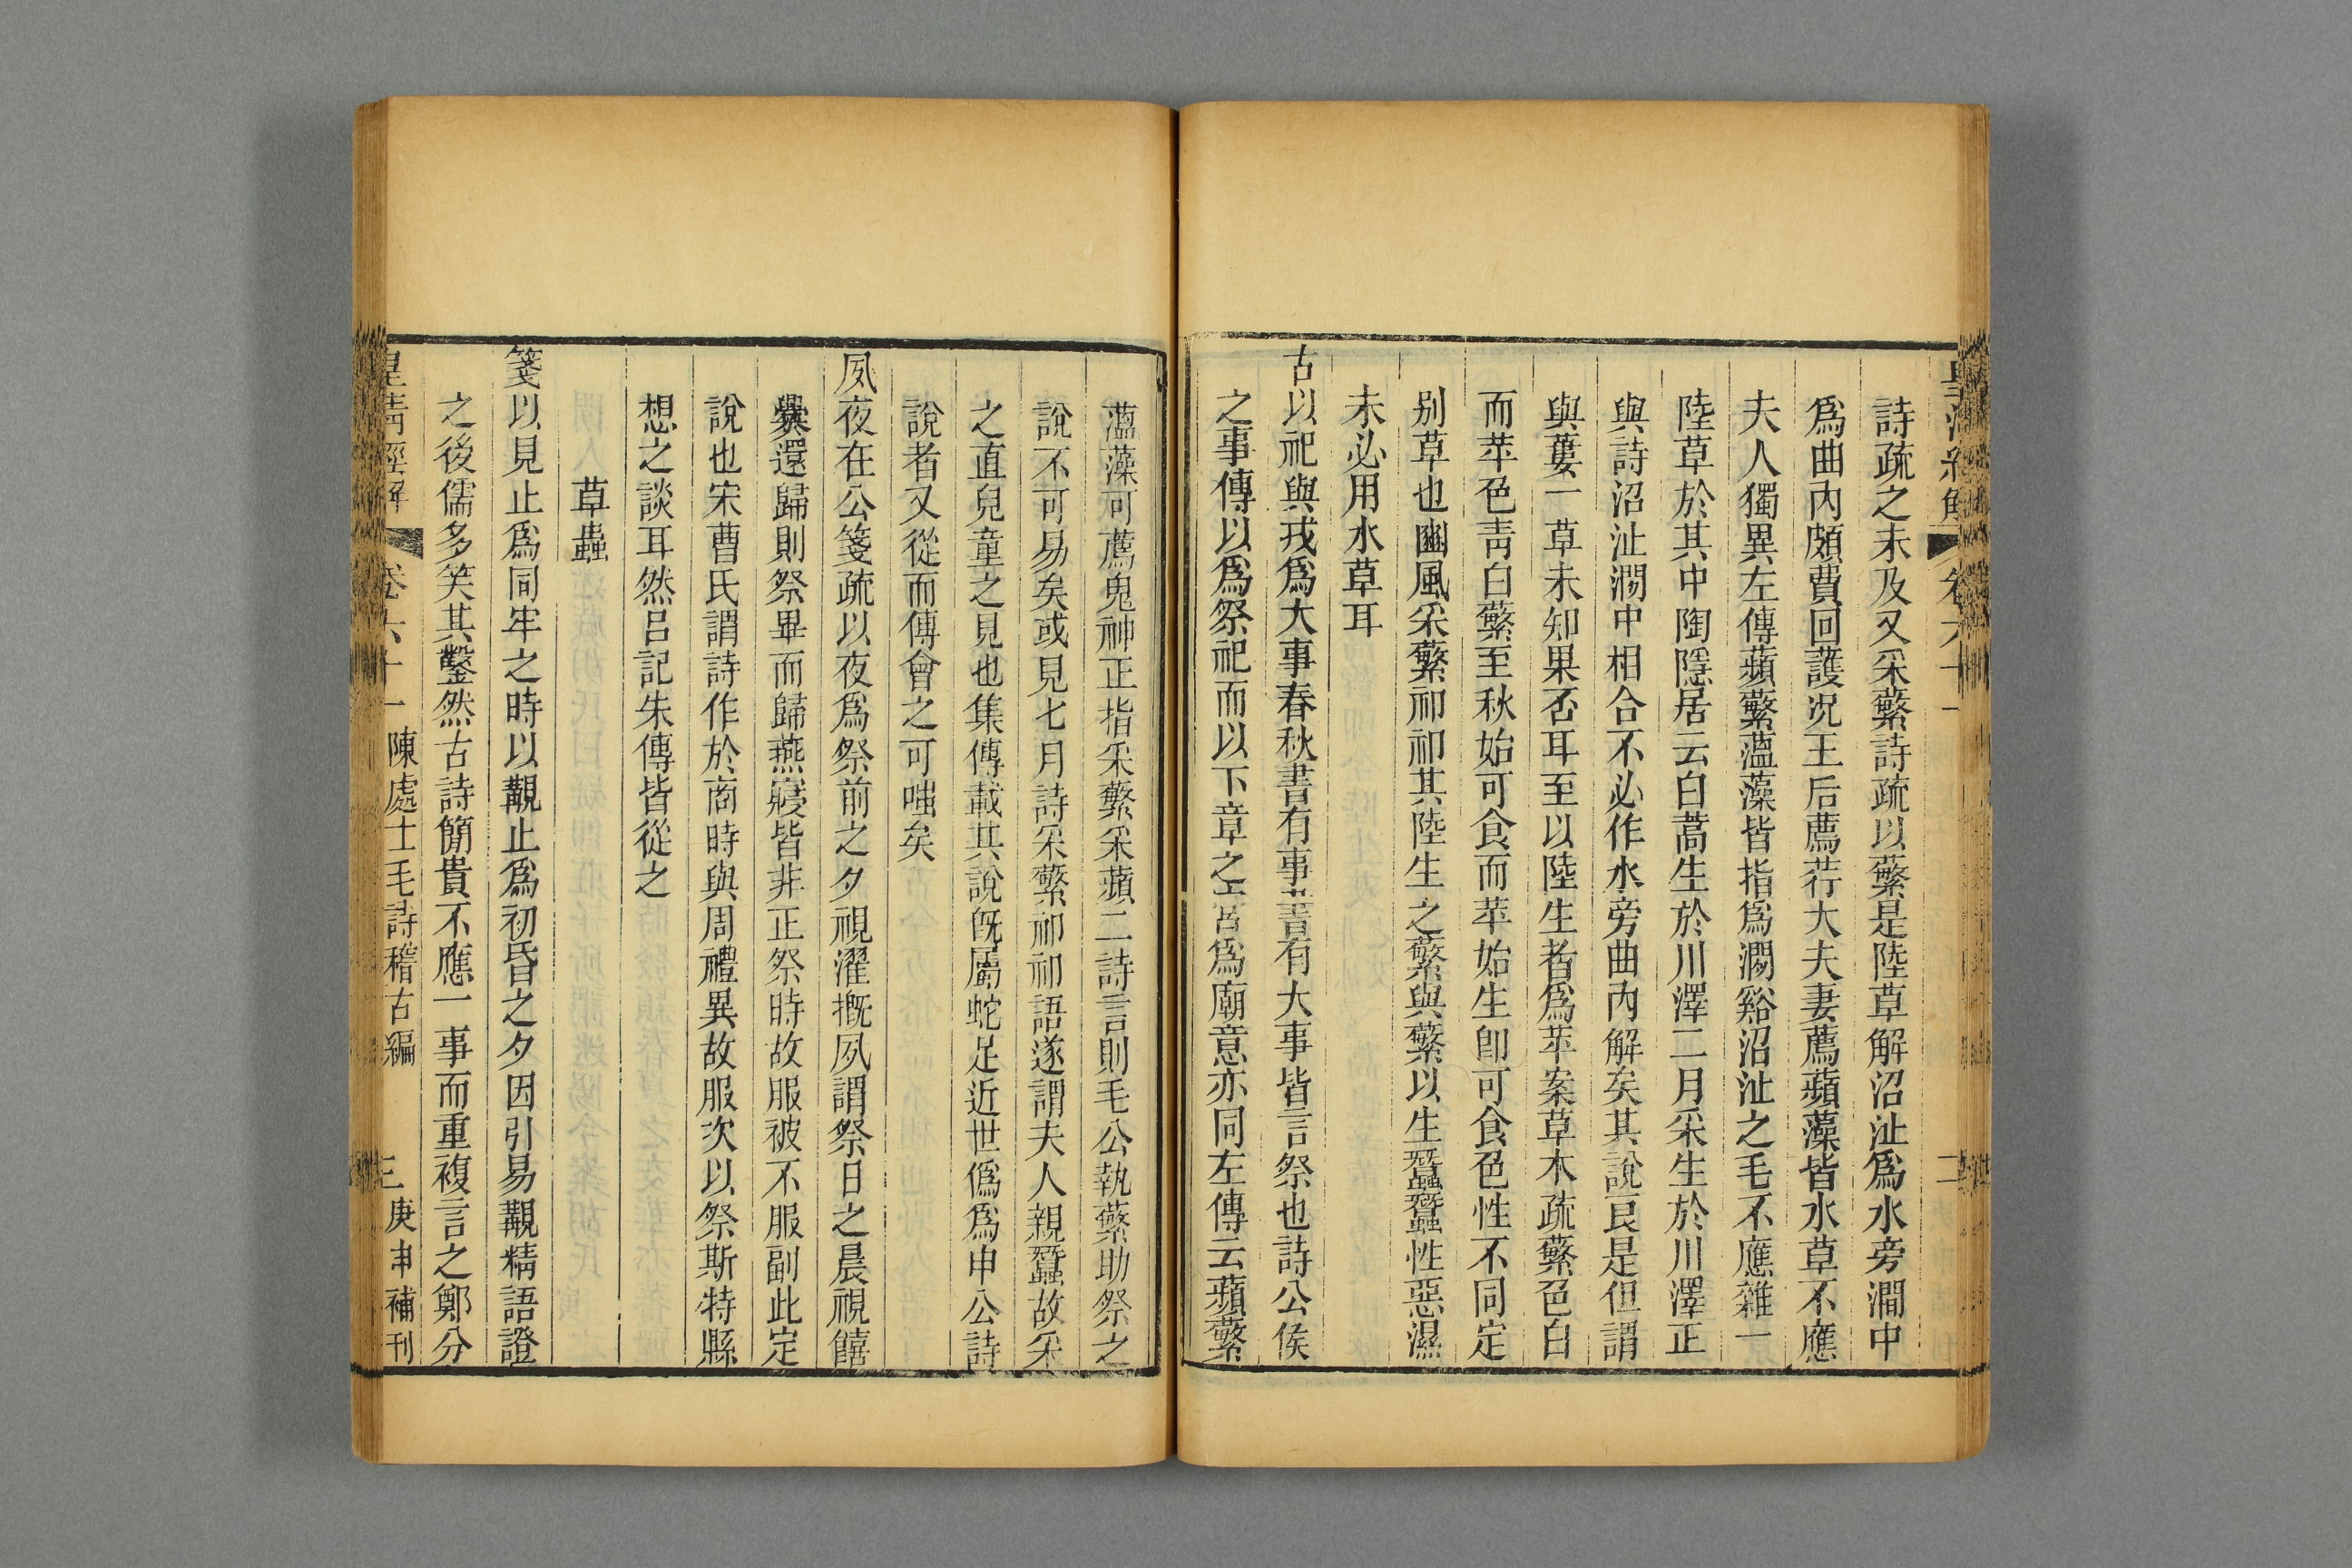 詩疏之未及又采蘩詩疏以蘩是陸草解沼沚爲水旁澗中
爲曲內頗費回護况王后薦荇大夫妻薦蘋藻皆水草不應
夫人獨異左傳蘋蘩薀藻皆指爲澗谿沼沚之毛不應雜一
陸草於其中陶隱居云白蒿生於川澤二月采生於川澤正
與詩沼沚澗中相合不必作水旁曲內解矣其說良是但謂
與蔞一草未知果否耳至以陸生者爲苹案草木疏蘩色白
而苹色靑白蘩至秋始可食而苹始生卽可食色性不同定
別草也豳風采蘩祁祁其陸生之蘩與蘩以生蠶蠶性惡濕
未必用水草耳
古以祀與戎爲大事春秋書有事書有大事皆言祭也詩公侯
之事傳以爲祭祀而以下章之宮爲廟意亦同左傳云蘋蘩
薀藻可薦鬼神正指采蘩采蘋二詩言則毛公執蘩助祭之
說不可易矣或見七月詩采蘩祁祁語遂謂夫人親蠶故采
之直兒童之見也集傳載其說旣屬蛇足近世僞爲申公詩
說者又從而傳會之可嗤矣
夙夜在公箋疏以夜爲祭前之夕視濯摡夙謂祭日之晨視饎
爨還歸則祭畢而歸燕寢皆非正祭時故服被不服副此定
說也宋曹氏謂詩作於商時與周禮異故服次以祭斯特縣
想之談耳然呂記朱傳皆從之
草蟲
箋以見止爲同牢之時以覯止爲初昏之夕因引易覯精語證
之後儒多笑其鑿然古詩簡貴不應一事而重複言之鄭分
皇淸經解 卷六十一 陳處士毛詩稽古編 三 庚申補刊